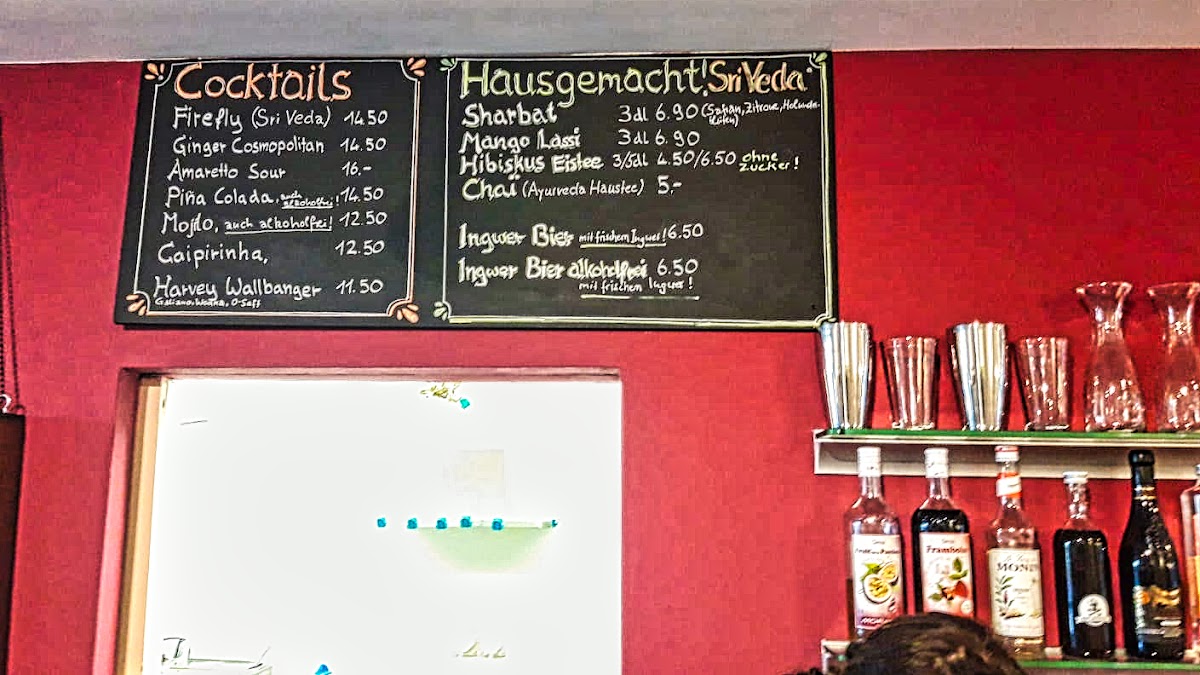 Cocktails
Firefly (Sri Veda) 14.50
Ginger Cosmopolitan 14.50
Amaretto Sour 16.-
Piña Colada, auch alkoholfrei! 14.50
Mojito, auch alkoholfrei! 12.50
Caipirinha, 12.50
Harvey Wallbanger 11.50
Galiano, Wodka, O-Saft
Hausgemacht! Sri Veda
Sharbat 3dl 6.90 (Safran, Zitrone,
Mango Lassi 3dl 6.90
Hibiskus Eistee 3/5dl 4.50/6.50 ohne Zucker!
Chaï (Ayurveda Haustee) 5,-
Ingwer Bier mit frischem Ingwer! 6.50
Ingwer Bier alkoholfrei 6.50
mit frischem Ingwer!
Framboise
MONIN